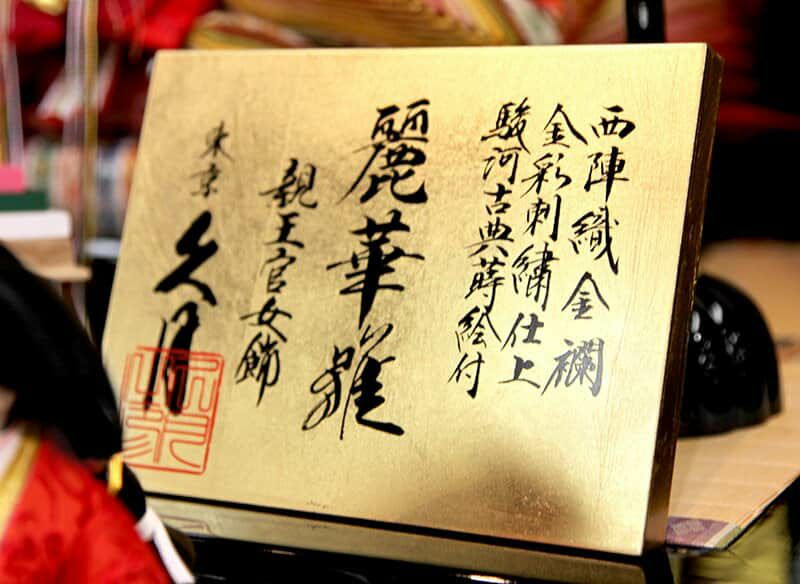 西陣織金襴
金彩刺繍仕上
駿河古典蒔絵付
麗華雅
親王官女飾
東京 久月